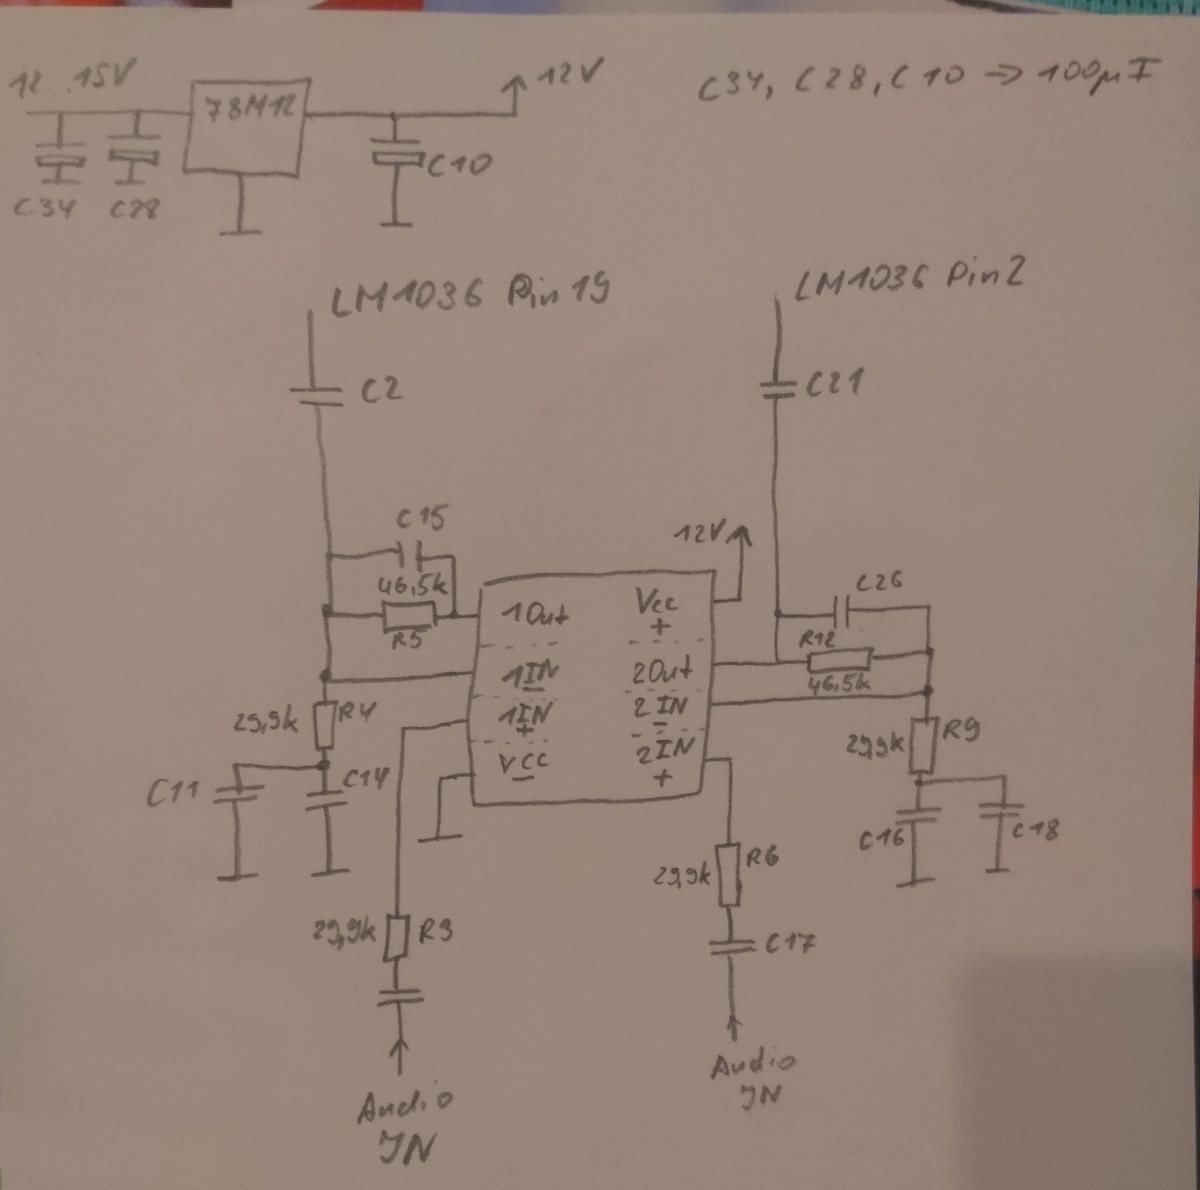 12..15V
78M12
12V
C34, C28, C10 → 100µF
C34
C28
C10
LM1036 Pin19
LM1036 Pin2
C2
C21
C15
46,5k
R5
12V
1Out
Vcc
+
C26
R12
46,5k
1IN
-
2Out
1IN
+
2IN
-
VCC
-
2IN
+
29,9k
R4
C11
C14
29,9k
R9
C16
C18
29,9k
R6
29,9k
R3
C17
Audio
IN
Audio
IN